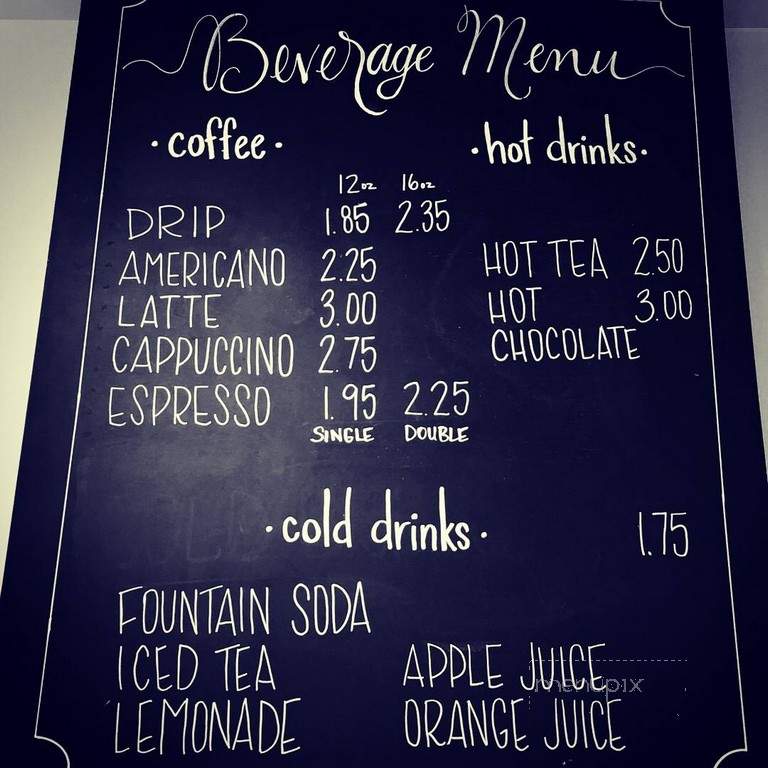 Beverage Menu
· coffee ·
12oz 16oz
DRIP 1.85 2.35
AMERICANO 2.25
LATTE 3.00
CAPPUCCINO 2.75
ESPRESSO 1.95 2.25
SINGLE DOUBLE
· hot drinks ·
HOT TEA 2.50
HOT 3.00
CHOCOLATE
· cold drinks · 1.75
FOUNTAIN SODA
ICED TEA
LEMONADE
APPLE JUICE
ORANGE JUICE
menupix